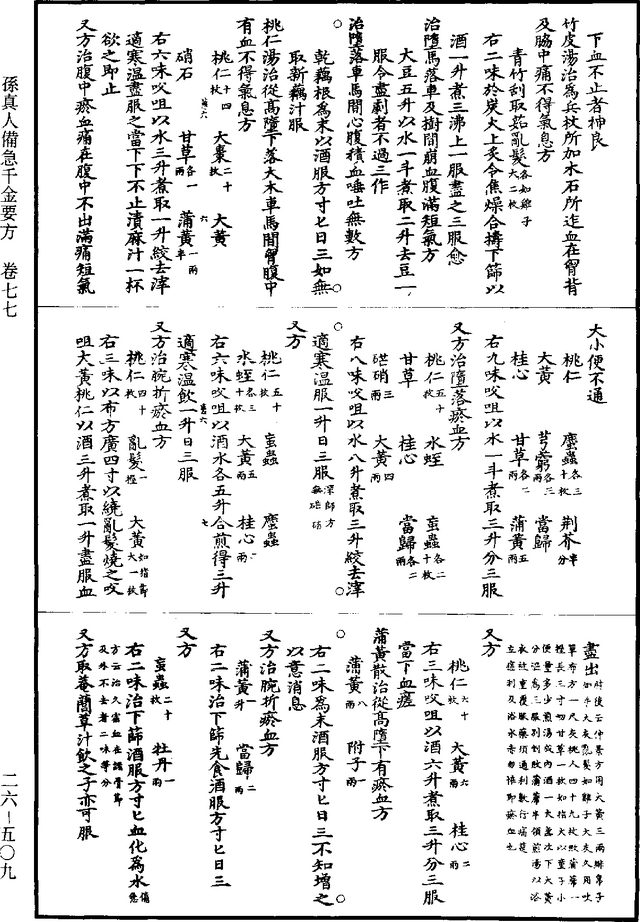 下血不止者神良
竹皮湯治為兵杖所加木石所迮血在胷背
及脇中痛不得氣息方
青竹刮取茹亂髮各如雞子大二枚
右二味於炭火上炙令焦燥合擣下篩以
酒一升煮三沸上一服盡之三服愈
治墮馬落車及樹間崩血腹滿短氣方
大豆五升以水一斗煮取二升去豆一
服令盡劇者不過三作
治墮落車馬間心腹積血唾吐無數方
乾藕根為末以酒服方寸匕日三如無
取新藕汁服
桃仁湯治從高墮下落大木車馬間胷腹中
有血不得氣息方
桃仁十四枚 大棗二十枚 大黃
硝石 甘草各一兩 蒲黃一兩半
右六味㕮咀以水三升煮取一升絞去滓
適寒溫盡服之當下下不止漬麻汁一杯
欲之即止
又方治腹中瘀血痛在腹中不出滿痛短氣
大小便不通
桃仁 䗪蟲各三十枚 荆芥半分
大黃 芎藭各三兩 當歸
桂心 甘草各二兩 蒲黃五兩
右九味㕮咀以水一斗煮取三升分三服
又方治墮落瘀血方
桃仁五十枚 水蛭 䖟蟲各二十枚
甘草 桂心 當歸各二兩
硭硝三兩 大黃四兩
右八味㕮咀以水八升煮取三升絞去滓
適寒溫服一升日三服深師方無硭硝
又方
桃仁五十枚 䖟蟲 䗪蟲
水蛭各三十枚 大黃五兩 桂心
右六味㕮咀以酒水各五升合煎得三升
適寒溫飲一升日三服
又方治腕折瘀血方
桃仁四十枚 亂髮一握 大黃如指節大一枚
右三味以布方廣四寸以繞亂髮燒之㕮
咀大黃桃仁以酒三升煮取一升盡服血
盡出
又方
桃仁六十枚 大黃六兩 桂心二兩
右三味㕮咀以酒六升煮取三升分三服
當下血瘥
蒲黃散治從高墮下有瘀血方
蒲黃八兩 附子一兩
右二味為末酒服方寸匕日三不知增之
以意消息
又方治腕折瘀血方
蒲黃一升 當歸二兩
右二味治下篩先食酒服方寸匕日三
又方
䖟蟲二十枚 牡丹一兩
右二味治下篩酒服方寸匕血化為水
又方取菴䕡草汁飲之子亦可服
孫真人備急千金要方 卷七七
二六—五〇九